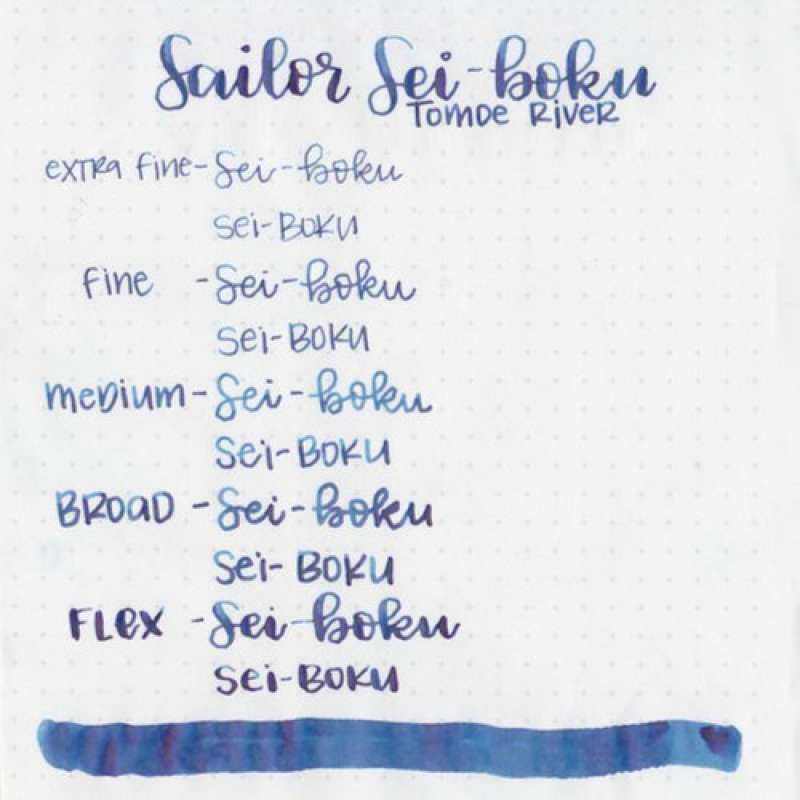 Sailor Sei-boku
Tomoe River
extra fine - Sei-boku
Sei-Boku
fine - Sei-boku
Sei-Boku
medium - Sei-boku
Sei-Boku
Broad - Sei-boku
Sei-Boku
Flex - Sei-boku
Sei-Boku